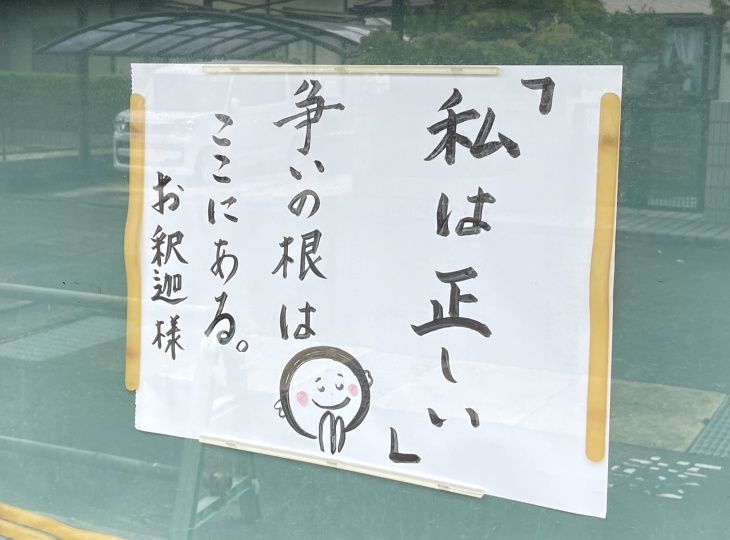 「私は正しい」
争いの根は
ここにある。
お釈迦様